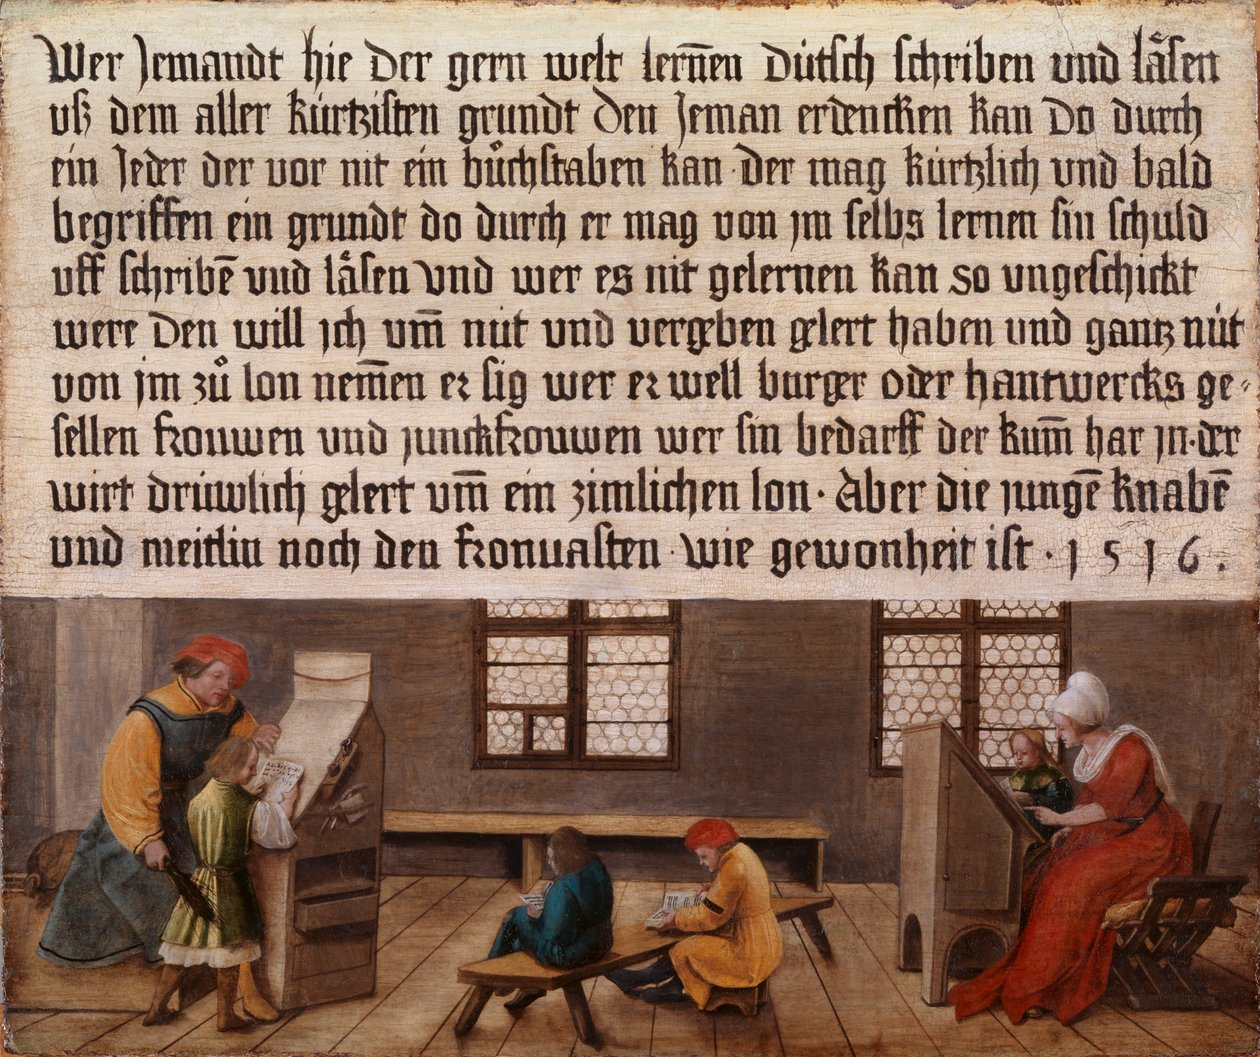 Wer Jemandt hie der gern welt lern̄en dütſch ſchriben und lǎ̊ſen
uſz dem aller kürtziſten grundt den Jeman erdencken kan Do durch
ein Jeder der vor nit ein bůchſtaben kan · der mag kürtzlich und bald
begriffen ein grundt do durch er mag von jm ſelbs lernen ſin ſchuld
uff ſchribē vnd lǎ̊ſen Vnd wer es nit gelernen kan so vngeſchickt
were Den will jch vm̄ nüt vnd vergeben gelert haben und gantz nüt
von jm zů lon nem̄en er ſig wer er well burger oder hantwercks ge-
ſellen frouwen vnd junckfrouwen wer ſin bedarff der kum̄ har jn · der
wirt drüwlich gelert vm̄ ein zimlichen lon · Aber die jungē knabē
und meitlin noch den fronuaſten · wie gewonheit iſt · 1516 ·